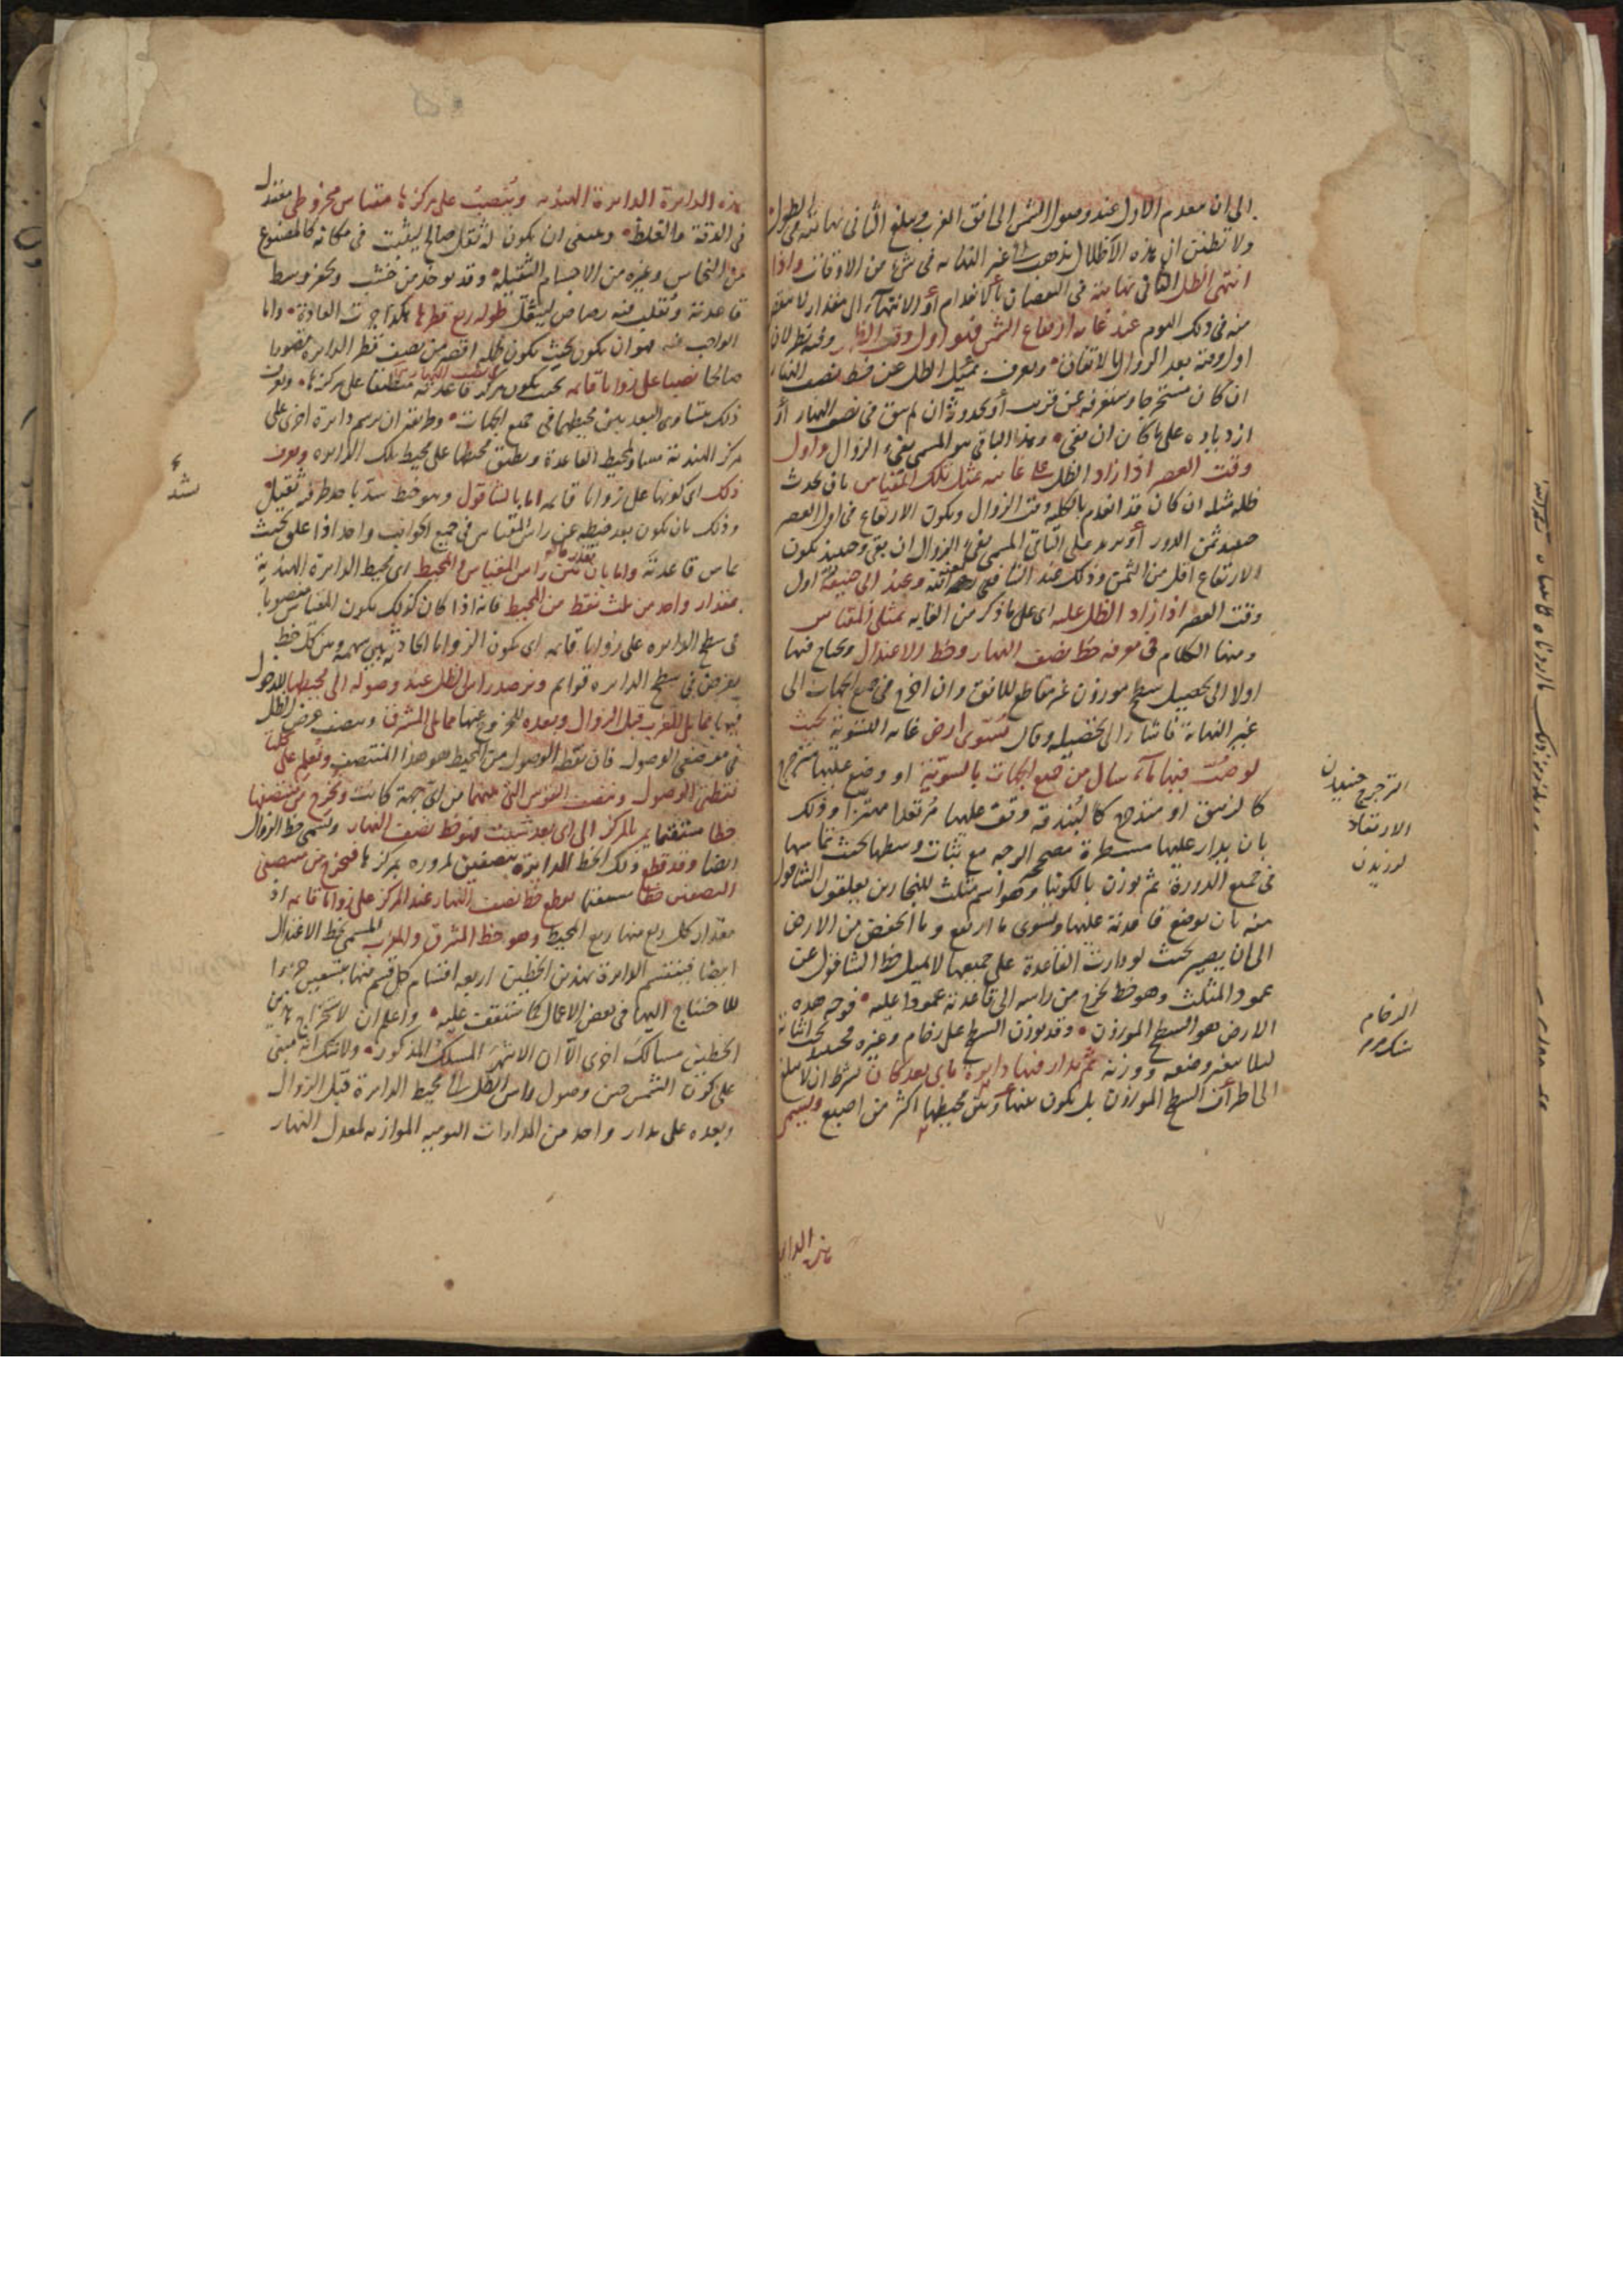 الى ان ينعدم الاول عند وصول الشمس الى افق الغرب ويبلغ الثانى نهايته فى الطول
ولا تظنن ان هذه الاظلال تذهب الى غير النهايه فى شئ من الاوقات واذا
انتهى الظل الثانى نهايته فى النقصان بالانعدام او الانتهاء الى مقدار لا ينقص
منه فى ذلك اليوم عند غايه ارتفاع الشمس فهو اول وقت الظهر وفيه نظر لان
اول وقته بعد الزوال بالاتفاق ويعرف بميل الظل عن خط نصف النهار
ان كان مستخرجا وستعرفه عن قريب او بحدوثه ان لم يبق فى نصف النهار او
ازدياده على ما كان ان بقى وهذا الباقى هو المسمى بفئ الزوال واول
وقت العصر اذا زاد الظل على غايته بمثل تلك المقياس بان يحدث
ظله مثله ان كان قد انعدم بالكليه وقت الزوال ويكون الارتفاع فى اول العصر
حينئذ ثمن الدور او يزيد على الباقى المسمى بفئ الزوال ان بقى وحينئذ يكون
الارتفاع اقل من الثمن وذلك عند الشافعى وعند ابى حنيفة اول
وقت العصر اذا زاد الظل عليه اى على ما ذكر من الغايه بمثلى المقياس
ومنها الكلام فى معرفه خط نصف النهار وخط الاعتدال ويحتاج فيها
اولا الى تحصيل سطح موزون غير مقاطع للافق وان اخرج فى جميع الجهات الى
غير النهاية فاشار الى تحصيله وقال تسوى ارض غايه التسوية بحيث
لو صب فيها ماء سال من جميع الجهات بالسوية او وضع عليها مترجرج
كالزئبق او متدحرج كالبندقة وقف عليها مرتعدا مهتزا وذلك
بان يدار عليها مسطرة مصححه الوجه مع ثبات وسطها بحيث تماسها
فى جميع الدورة ثم يوزن بالكونيا وهو اسم مثلث للنجارين يعلقون الشاقول
منه بان يوضع قاعدته عليها ويسوى ما ارتفع وما انخفض من الارض
الى ان يصير بحيث لو دارت القاعدة على جميعها لا يميل خط الشاقول عن
عمود المثلث وهو خط يخرج من راسه الى قاعدته عمودا عليه فوجه هذه
الارض هو السطح الموزون وقد يوزن السطح على رخام وغيره
لئلا يتغير وضعه ووزنه ثم يدار فيها دايرة باى بعد كان بشرط ان لا يبلغ
الى اطراف السطح الموزون بل يكون بينها وبين محيطها اكثر من اصبع ويسمى
هذه الداير
الترجرج جنبيدن
الارتعاد
لرزيدن
الرخام
هذه الدايرة الدايرة الهنديه وينصب على مركزها مقياس مخروطى معتدل
فى الدقة والغلظ وينبغى ان يكون له ثقل صالح ليثبت فى مكانه كالمصنوع
من النحاس وغيره من الاجسام الثقيلة وقد يوخذ من خشب ويحفر وسط
قاعدته ويقلب فيه رصاص ليثقل طوله ربع قطرها هكذا جرت العادة واما
الواجب فيه فهو ان يكون بحيث يكون ظله اقصر من نصف قطر الدايرة نقصانا
صالحا نصبا على زوايا قايمه بحيث يكون مركز قاعدته منطبقا على مركزها ويعرف
ذلك بتساوى البعد بين محيطيهما فى جميع الجهات وطريقه ان يرسم دايرة اخرى على
مركز الهندية مساو لمحيط القاعدة ويطبق محيطها على محيط تلك الدايره ويعرف
ذلك اى كونها على زوايا قايمه اما بالشاقول وهو خيط يشد باحد طرفيه ثقيل
وذلك بان يكون بعد خيطه عن راس المقياس فى جميع الجوانب واحدا اذا علق بحيث
يماس قاعدته واما بان يقدر ما بين راس المقياس والمحيط اى محيط الدايرة الهندية
بمقدار واحد من ثلث نقط من المحيط فانه اذا كان كذلك يكون المقياس منصوبا
فى سطح الدايره على زوايا قايمه اى يكون الزوايا الحادثه بين سهمه وبين كل خط
يفرض فى سطح الدايره قوائم ويرصد راس الظل عند وصوله الى محيطها للدخول
فيها مما يلى الغرب قبل الزوال وبعده للخروج عنها مما يلى المشرق وينصف عرض الظل
فى موضعى الوصول فان نقطه الوصول من المحيط هو هذا المنتصف ويعلم على كلتا
نقطتى الوصول وينصف القوس التى بينهما من اى جهة كانت ويخرج من منتصفها
خطا مستقيما يمر بالمركز الى اى بعد شئت فهو خط نصف النهار ويسمى خط الزوال
ايضا وقد قطع ذلك الخط الدايرة بنصفين لمروره بمركزها فيخرج من منتصفى
النصفين خطا مستقيما يقطع خط نصف النهار عند المركز على زوايا قايمه اذ
مقدار كل ربع منها ربع المحيط وهو خط المشرق والمغرب المسمى بخط الاعتدال
ايضا فينقسم الدايرة بهذين الخطين اربعه اقسام كل قسم منها بتسعين جزءا
للاحتياج اليها فى بعض الاعمال كما ستقف عليه واعلم ان لاستخراج هذين
الخطين مسالك اخرى الا ان الاشهر المسلك المذكور ولا شك انه مبنى
على كون الشمس حين وصول راس الظل الى محيط الدايرة قبل الزوال
وبعده على مدار واحد من المدارات اليوميه الموازيه لمعدل النهار